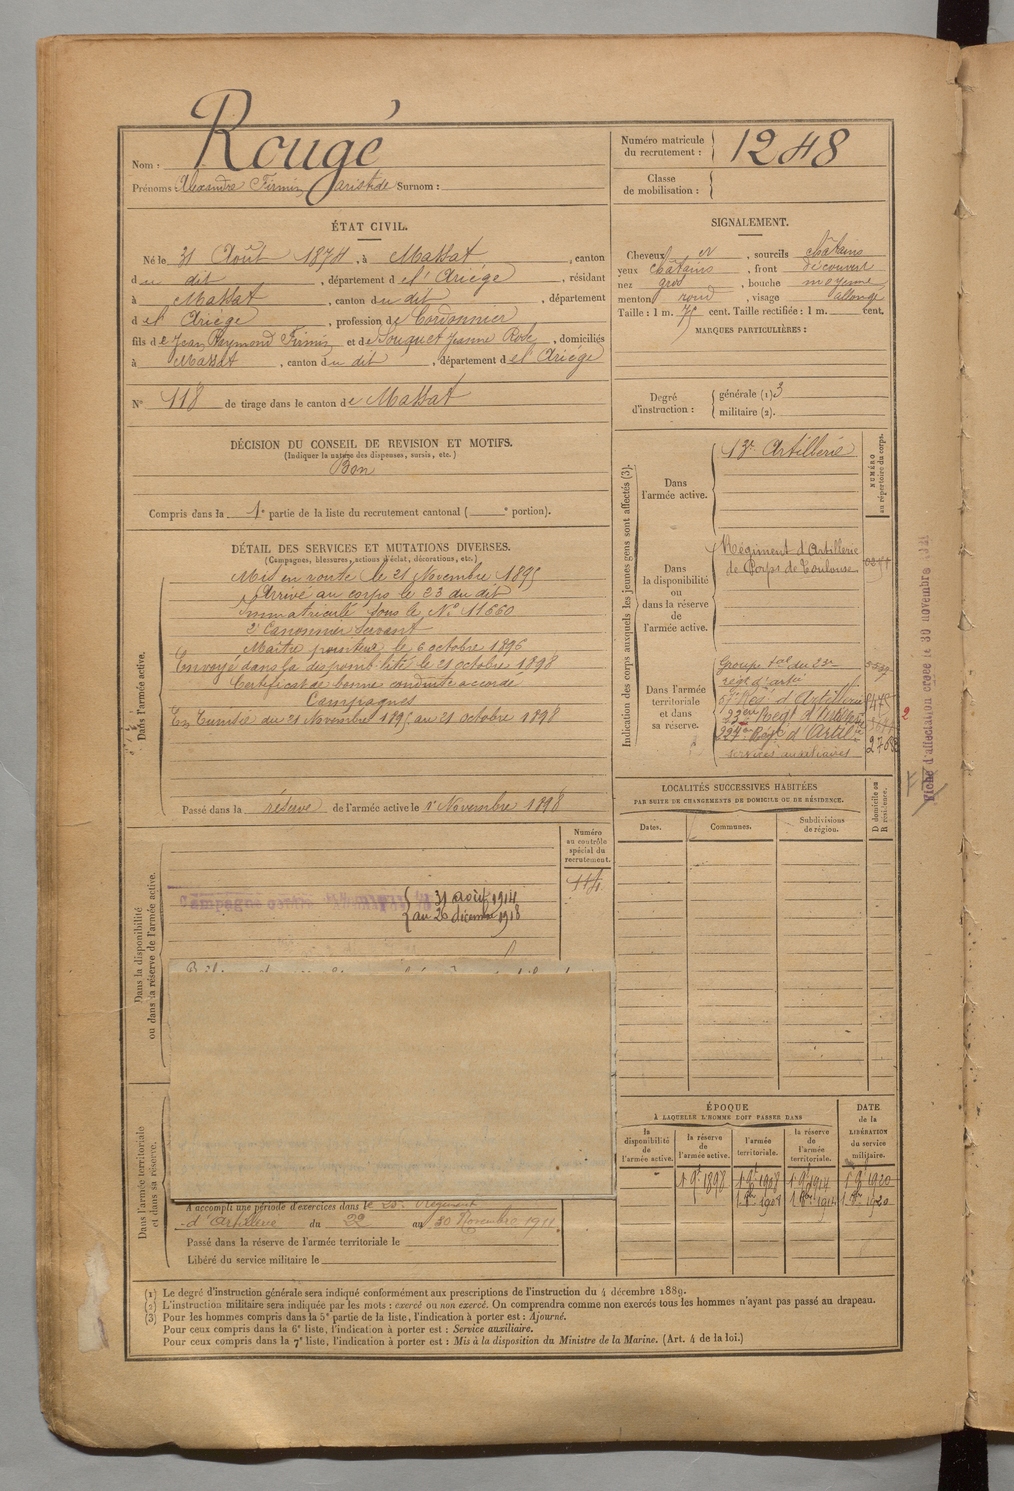 Nom : Rougé
Prénoms : Alexandre Firmin Aristide Surnom :
Numéro matricule du recrutement : 1248
Classe de mobilisation :
ÉTAT CIVIL.
Né le 31 Août 1874, à Massat, canton
du dit, département de l'Ariège, résidant
à Massat, canton du dit, département
de l'Ariège, profession de Cordonnier
fils de Jean Raymond Firmin et de Souquet Jeanne Rose, domiciliés
à Massat, canton du dit, département de l'Ariège
N° 118 de tirage dans le canton de Massat
DÉCISION DU CONSEIL DE REVISION ET MOTIFS.
(Indiquer la nature des dispenses, sursis, etc.)
Bon
Compris dans la 1e partie de la liste du recrutement cantonal ( e portion).
DÉTAIL DES SERVICES ET MUTATIONS DIVERSES.
(Campagnes, blessures, actions d'éclat, décorations, etc.)
Dans l'armée active.
Mis en route le 21 Novembre 1895
Arrivé au corps le 23 du dit
Immatriculé sous le N° 11660
2e Canonnier Servant
Maître pointeur le 6 octobre 1896
Envoyé dans la disponibilité le 21 octobre 1898
Certificat de bonne conduite accordé
Campagnes
En Tunisie du 21 Novembre 1895 au 21 octobre 1898
Passé dans la réserve de l'armée active le 1er Novembre 1898
Dans la disponibilité ou dans la réserve de l'armée active.
Numéro au contrôle spécial du recrutement.
31 août 1914
au 26 décembre 1918
Dans l'armée territoriale et dans sa réserve.
A accompli une période d'exercices dans le 23e Régiment
d'Artillerie du 22 au 30 Novembre 1911
Passé dans la réserve de l'armée territoriale le
Libéré du service militaire le
SIGNALEMENT.
Cheveux et, sourcils châtains
yeux châtains, front découvert
nez gros, bouche moyenne
menton rond, visage allongé
Taille : 1 m. 75 cent. Taille rectifiée : 1 m. cent.
MARQUES PARTICULIÈRES :
Degré d'instruction : générale (1) 3
militaire (2).
Indication des corps auxquels les jeunes gens sont affectés (3).
NUMÉRO au répertoire du corps.
Dans l'armée active.
13e Artillerie
Dans la disponibilité ou dans la réserve de l'armée active.
Régiment d'Artillerie
de Corps de Toulouse
Dans l'armée territoriale et dans sa réserve.
Groupe tal du 23e
régt d'artie
57e Rég. d'Artillerie
23ème Régt d'Artillerie
224e Régt d'Artie
services auxiliaires
2
Fiche d'affectation créée le 30 novembre
LOCALITÉS SUCCESSIVES HABITÉES
PAR SUITE DE CHANGEMENTS DE DOMICILE OU DE RÉSIDENCE.
Dates. Communes. Subdivisions de région. D domicile ou R résidence.
ÉPOQUE
À LAQUELLE L'HOMME DOIT PASSER DANS
DATE de la LIBÉRATION du service militaire.
la disponibilité de l'armée active. la réserve de l'armée active. l'armée territoriale. la réserve de l'armée territoriale.
1 9e 1898 1 9e 1908 1 9e 1914 1 9e 1920
1908 1914 1920
(1) Le degré d'instruction générale sera indiqué conformément aux prescriptions de l'instruction du 4 décembre 1889.
(2) L'instruction militaire sera indiquée par les mots : exercé ou non exercé. On comprendra comme non exercés tous les hommes n'ayant pas passé au drapeau.
(3) Pour les hommes compris dans la 5e partie de la liste, l'indication à porter est : Ajourné.
Pour ceux compris dans la 6e liste, l'indication à porter est : Service auxiliaire.
Pour ceux compris dans la 7e liste, l'indication à porter est : Mis à la disposition du Ministre de la Marine. (Art. 4 de la loi.)